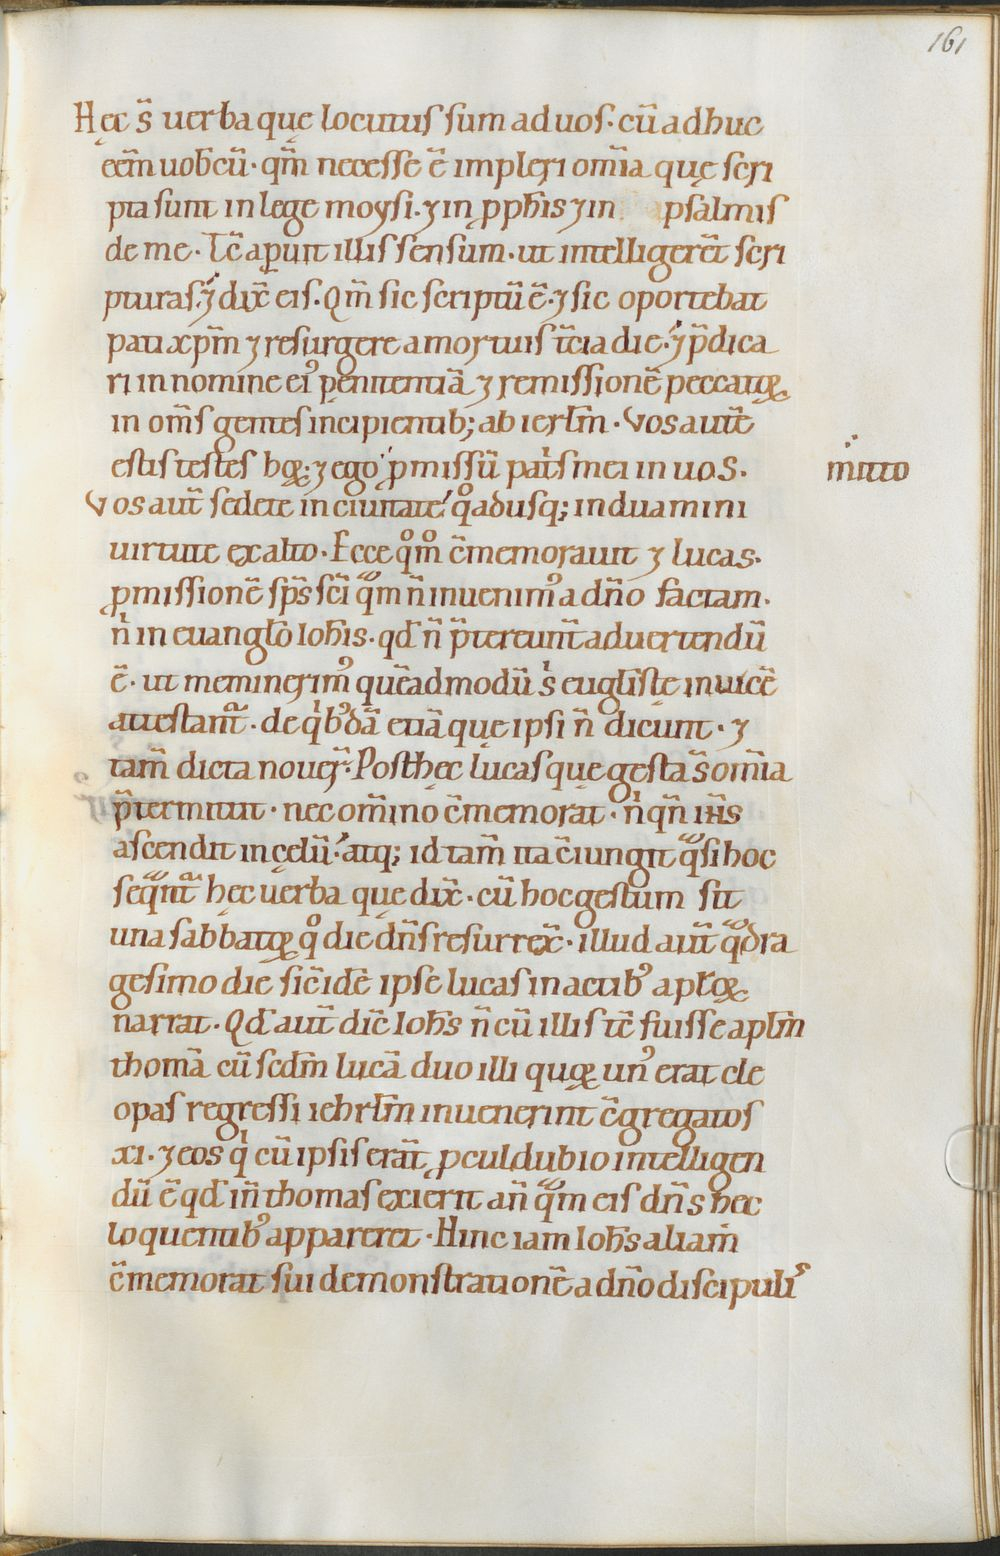 161
Hęc s̃ uerba quę locutus sum ad uos · cũ adhuc
eẽm uob̃cũ · qm̃ necesse ẽ impleri om̃ia quę scri
pta sunt in lege moysi · ⁊ in ꝓph̃is ⁊ in psalmis
de me · Tc̃ apuit illis sensum · ut intelligerẽt scri
pturas · ⁊ dix̃ eis · Qm̃ sic scriptũ ẽ · ⁊ sic oportebat
pati xpm̃ ⁊ resurgere a mortuis t̃cia die · ⁊ p̃dica
ri in nomine eiꝰ pęnitentiã ⁊ remissionẽ peccatoꝝ
in om̃s gentes incipientib; ab ierl̃m · Vos autẽ
estis testes hoꝝ · ⁊ ego ꝓmissũ pat̃s mei in uos ·
mitto
Vos aut̃ sedete in ciuitate qͦadusq; induamini
uirtute ex alto · Ecce qͦmͦ c̃memorauit ⁊ lucas ·
ꝓmissionẽ sp̃s sc̃i qᵃm ñ inuenimꝰ a dño factam ·
nͥ in euangl̃o Ioh̃is · qđ ñ p̃tereunt̃ aduertendũ
ẽ · ut meminerimꝰ quẽadmodũ sͥ eugl̃istę inuicẽ
attestant᷑ · de qͥbꝰdã etiã quę ipsi ñ dicunt · ⁊
tam̃ dicta nouer̃ · Post hęc lucas quę gesta s̃ om̃ia
p̃termittit · nec om̃ino c̃memorat · nͥ qñ iħs
ascendit in cęlũ · atq; id tam̃ ita c̃iungit qᵃsi hoc
seqᵃnt᷑ hęc uerba quę dix̃ · cũ hoc gestum sit
una sabbatoꝝ qͦ die dñs resurrex̃ · illud aut̃ qᵃdra
gesimo die sic̃ idẽ ipse lucas in actibꝰ apl̃oꝝ
narrat · Qđ aut̃ dic̃ Ioh̃s ñ cũ illis tc̃ fuisse apl̃m
thomã cũ scđm lucã duo illi quoꝝ unꝰ erat cle
opas regressi iehrl̃m inuenerint c̃gregatos
xi · ⁊ eos qͥ cũ ipsis erãt ꝓcul dubio intelligen
dũ ẽ qđ iñ thomas exierit añ qᵃm eis dñs hec
loquentibꝰ appareret · Hinc iam Ioh̃s aliam
c̃memorat sui demonstrationẽ a dño discipulis